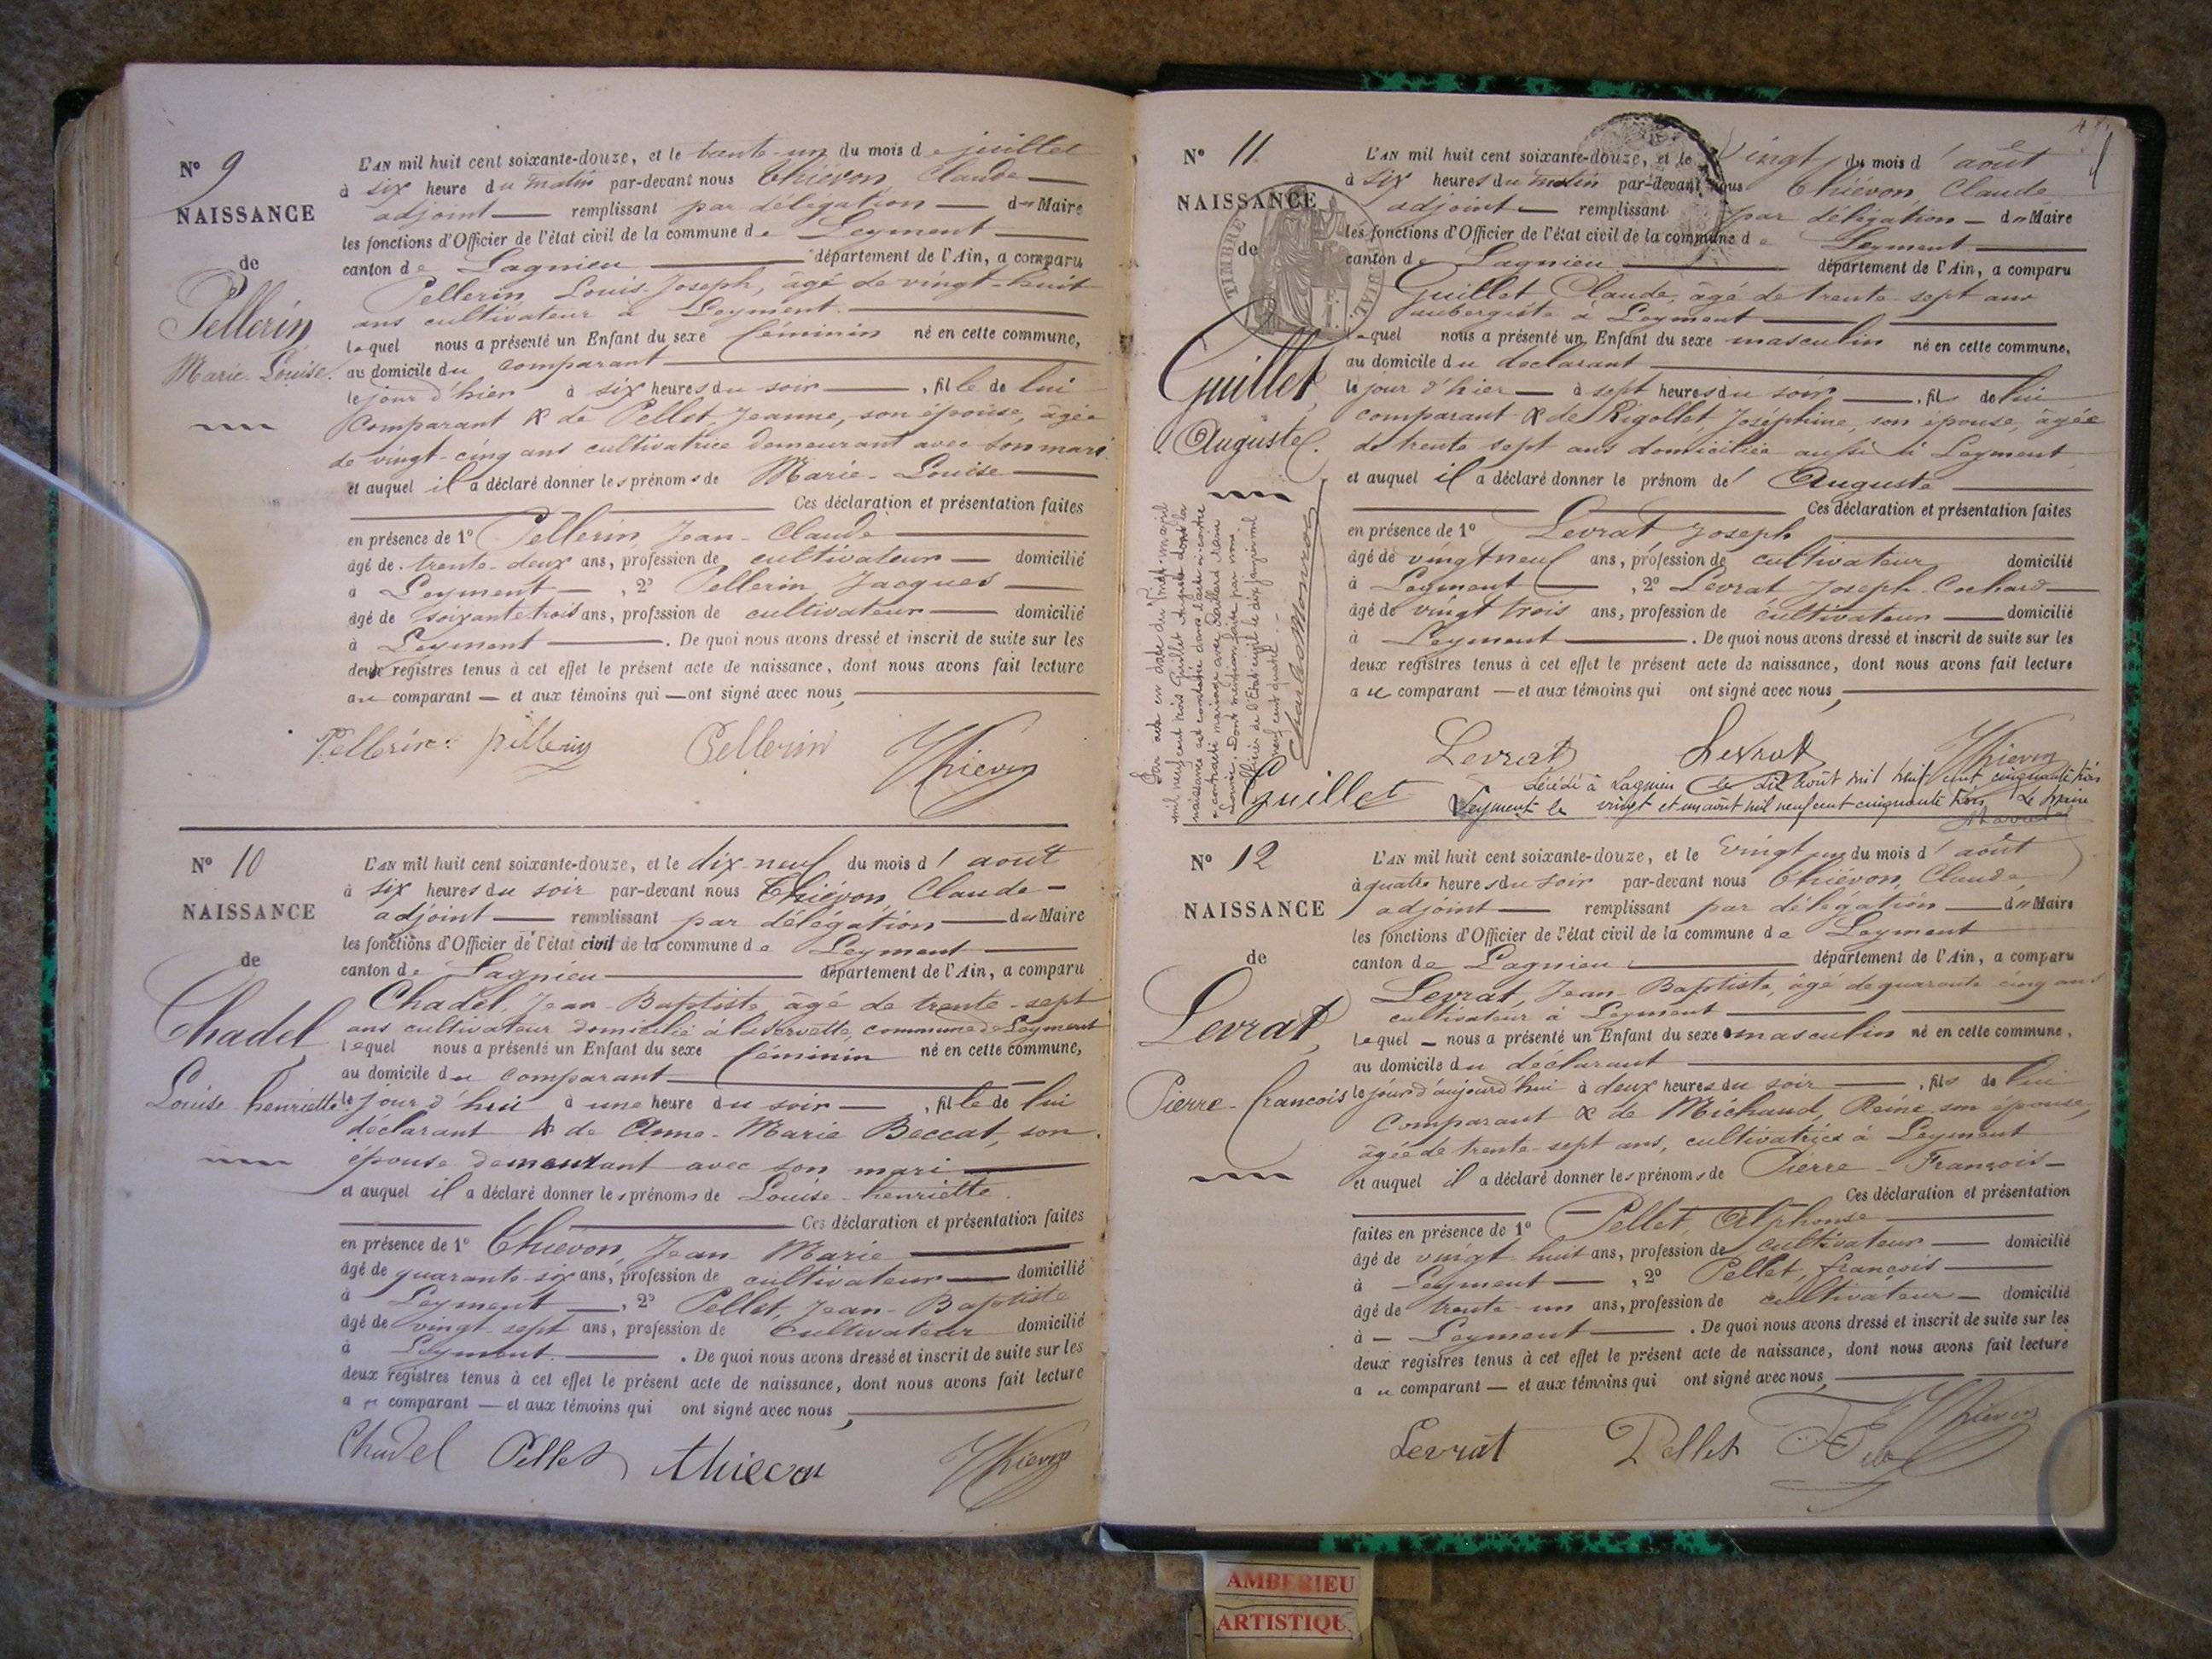 N° 9
NAISSANCE
de
Pellerin
Marie-Louise.
L'AN mil huit cent soixante-douze, et le trente-un du mois de juillet
à six heure du matin par-devant nous Thiévon, Claude
adjoint remplissant par délégation du Maire
les fonctions d'Officier de l'état civil de la commune de Leyment
canton de Lagnieu département de l'Ain, a comparu
Pellerin, Louis-Joseph, âgé de vingt-huit
ans cultivateur à Leyment.
lequel nous a présenté un Enfant du sexe féminin né en cette commune,
au domicile du comparant
le jour d'hier à six heures du soir, fille de lui
comparant & de Pellet, Jeanne, son épouse, âgée
de vingt-cinq ans cultivatrice demeurant avec son mari
et auquel il a déclaré donner les prénoms de Marie-Louise
Ces déclaration et présentation faites
en présence de 1° Pellerin, Jean-Claude
âgé de trente-deux ans, profession de cultivateur domicilié
à Leyment, 2° Pellerin Jacques
âgé de soixante trois ans, profession de cultivateur domicilié
à Leyment. De quoi nous avons dressé et inscrit de suite sur les
deux registres tenus à cet effet le présent acte de naissance, dont nous avons fait lecture
au comparant — et aux témoins qui — ont signé avec nous,
Pellerin pellerin Pellerin Thievon
N° 10
NAISSANCE
de
Chadel,
Louise-henriette
L'AN mil huit cent soixante-douze, et le dix-neuf du mois d'août
à six heures du soir par-devant nous Thiévon, Claude
adjoint remplissant par délégation du Maire
les fonctions d'Officier de l'état civil de la commune de Leyment
canton de Lagnieu département de l'Ain, a comparu
Chadel, Jean-Baptiste âgé de trente-sept
ans cultivateur domicilié à la servette, commune de Leyment
lequel nous a présenté un Enfant du sexe féminin né en cette commune,
au domicile du comparant
le jour d'hui à une heure du soir, fille de lui
déclarant & de Anne-Marie Beccat, son
épouse demeurant avec son mari
et auquel il a déclaré donner les prénoms de Louise-henriette.
Ces déclaration et présentation faites
en présence de 1° Thievon, Jean Marie
âgé de quarante-six ans, profession de cultivateur domicilié
à Leyment, 2° Pellet, Jean-Baptiste
âgé de vingt-sept ans, profession de cultivateur domicilié
à Leyment. De quoi nous avons dressé et inscrit de suite sur les
deux registres tenus à cet effet le présent acte de naissance, dont nous avons fait lecture
au comparant — et aux témoins qui ont signé avec nous,
Chadel Pellet thievon Thievon
N° 11
NAISSANCE
de
TIMBRE
Guillet,
Auguste.
L'AN mil huit cent soixante-douze, et le Vingt du mois d'août
à six heures du matin par-devant nous Thiévon, Claude
adjoint remplissant par délégation du Maire
les fonctions d'Officier de l'état civil de la commune de Leyment
canton de Lagnieu département de l'Ain, a comparu
Guillet Claude, âgé de trente-sept ans
aubergiste à Leyment
lequel nous a présenté un Enfant du sexe masculin né en cette commune,
au domicile du déclarant
le jour d'hier à sept heures du soir, fils de lui
comparant & de Rigollet Joséphine, son épouse, âgée
de trente sept ans domiciliée aussi à Leyment
et auquel il a déclaré donner le prénom de Auguste
Ces déclaration et présentation faites
en présence de 1° Levrat Joseph
âgé de vingt neuf ans, profession de cultivateur domicilié
à Leyment, 2° Levrat Joseph-Cochard
âgé de vingt trois ans, profession de cultivateur domicilié
à Leyment. De quoi nous avons dressé et inscrit de suite sur les
deux registres tenus à cet effet le présent acte de naissance, dont nous avons fait lecture
au comparant — et aux témoins qui ont signé avec nous,
Par acte en date du avril
mil neuf cent trois Guillet Auguste dont la
naissance est constatée dans l'acte ci-contre
a contracté mariage avec
Louise. Dont mention faite par nous
officier de l'Etat civil le dix janvier mil
neuf cent quatre.
Levrat Levrat Thievon
Guillet
Décédé à Lagnieu le dix août mil neuf cent cinquante trois
Leyment le vingt et un août mil neuf cent cinquante trois Le Maire
N° 12
NAISSANCE
de
Levrat,
Pierre-francois
L'AN mil huit cent soixante-douze, et le Vingt un du mois d'août
à quatre heures du soir par-devant nous Thiévon, Claude,
adjoint remplissant par délégation du Maire
les fonctions d'Officier de l'état civil de la commune de Leyment
canton de Lagnieu département de l'Ain, a comparu
Levrat, Jean-Baptiste, âgé de quarante cinq ans
cultivateur à Leyment
lequel — nous a présenté un Enfant du sexe masculin né en cette commune,
au domicile du déclarant
le jour d'aujourd'hui à deux heures du soir, fils de lui
comparant & de Michaud, Reine son épouse,
âgée de trente-sept ans, cultivatrice à Leyment
et auquel il a déclaré donner les prénoms de Pierre-François
Ces déclaration et présentation
faites en présence de 1° Pellet, Alphonse
âgé de vingt-huit ans, profession de cultivateur domicilié
à Leyment, 2° Pellet, françois
âgé de trente-un ans, profession de cultivateur domicilié
à Leyment. De quoi nous avons dressé et inscrit de suite sur les
deux registres tenus à cet effet le présent acte de naissance, dont nous avons fait lecture
au comparant — et aux témoins qui ont signé avec nous,
Levrat Pellet Thievon
AMBERIEU
ARTISTIQU